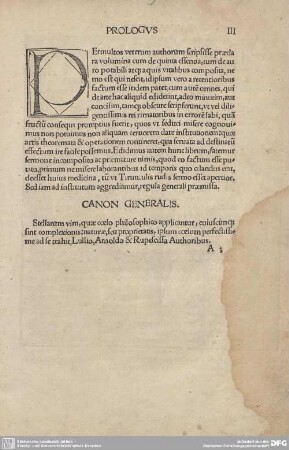 PROLOGVS III
PErmultos veterum authorum scripsisse præcla
ra volumina cum de quinta essentia, tum de au-
ro potabili atqꝫ aquis vitalibus compositis, ne-
mo est qui nesciat, id ipsum vero a recentioribus
factum esse indem patet, cum a
de arte hac aliquid ediderint, adeo minimum, aut
concisum, tamqꝫ obscure scripserunt, vt vel dili-
gentissimus rei rimator in errorē labi, quā
fructū consequi promptius fuerit, quos vt seduci misere cognoui-
mus non potuimus non aliquam certiorem date institutionem quæ
artis theoremata & operationem contineret, qua seruata ad destinatū
effectum ire facile possemus. Edidimus autem hunc librum, fatemur
sermone incomposito ac præmature nimis, quod eo factum esse pu-
tato, primum ne misere laborantibus id temporis quo
deesset huius medicina, tū vt Tirunculis rudis sermo esset apertior,
Sed iam ad institutum aggrediamur, regula generali præmissa.
CANON GENERALIS.
Stellarum vim, quæ cœlo philosophico applicantur, cuiuscunqꝫ
sint complexionis naturæ, seu proprietatis, ipsum cœlum perfectissi-
me ad se trahit, Lullio, Arnoldo & Rupescissa Authoribus.
A